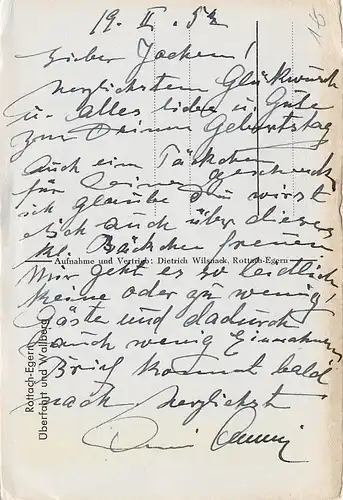 19. II. 52
15
Lieber Jochen!
herzlichsten Glückwunsch
u. alles liebe u. Gute
zum Deinem Geburtstag
auch ein Päckchen
für Deinen
ich glaube Du wirst
dich auch über dieses
kl. Päckchen freuen
Aufnahme und Vertrieb: Dietrich Wilsnack, Rottach-Egern
Mir geht es so leidlich
keine oder zu wenig
Gäste und dadurch
auch wenig Einnahmen
Brief kommt bald
nach herzlichst
Rottach-Egern
Überfahrt und Wallberg